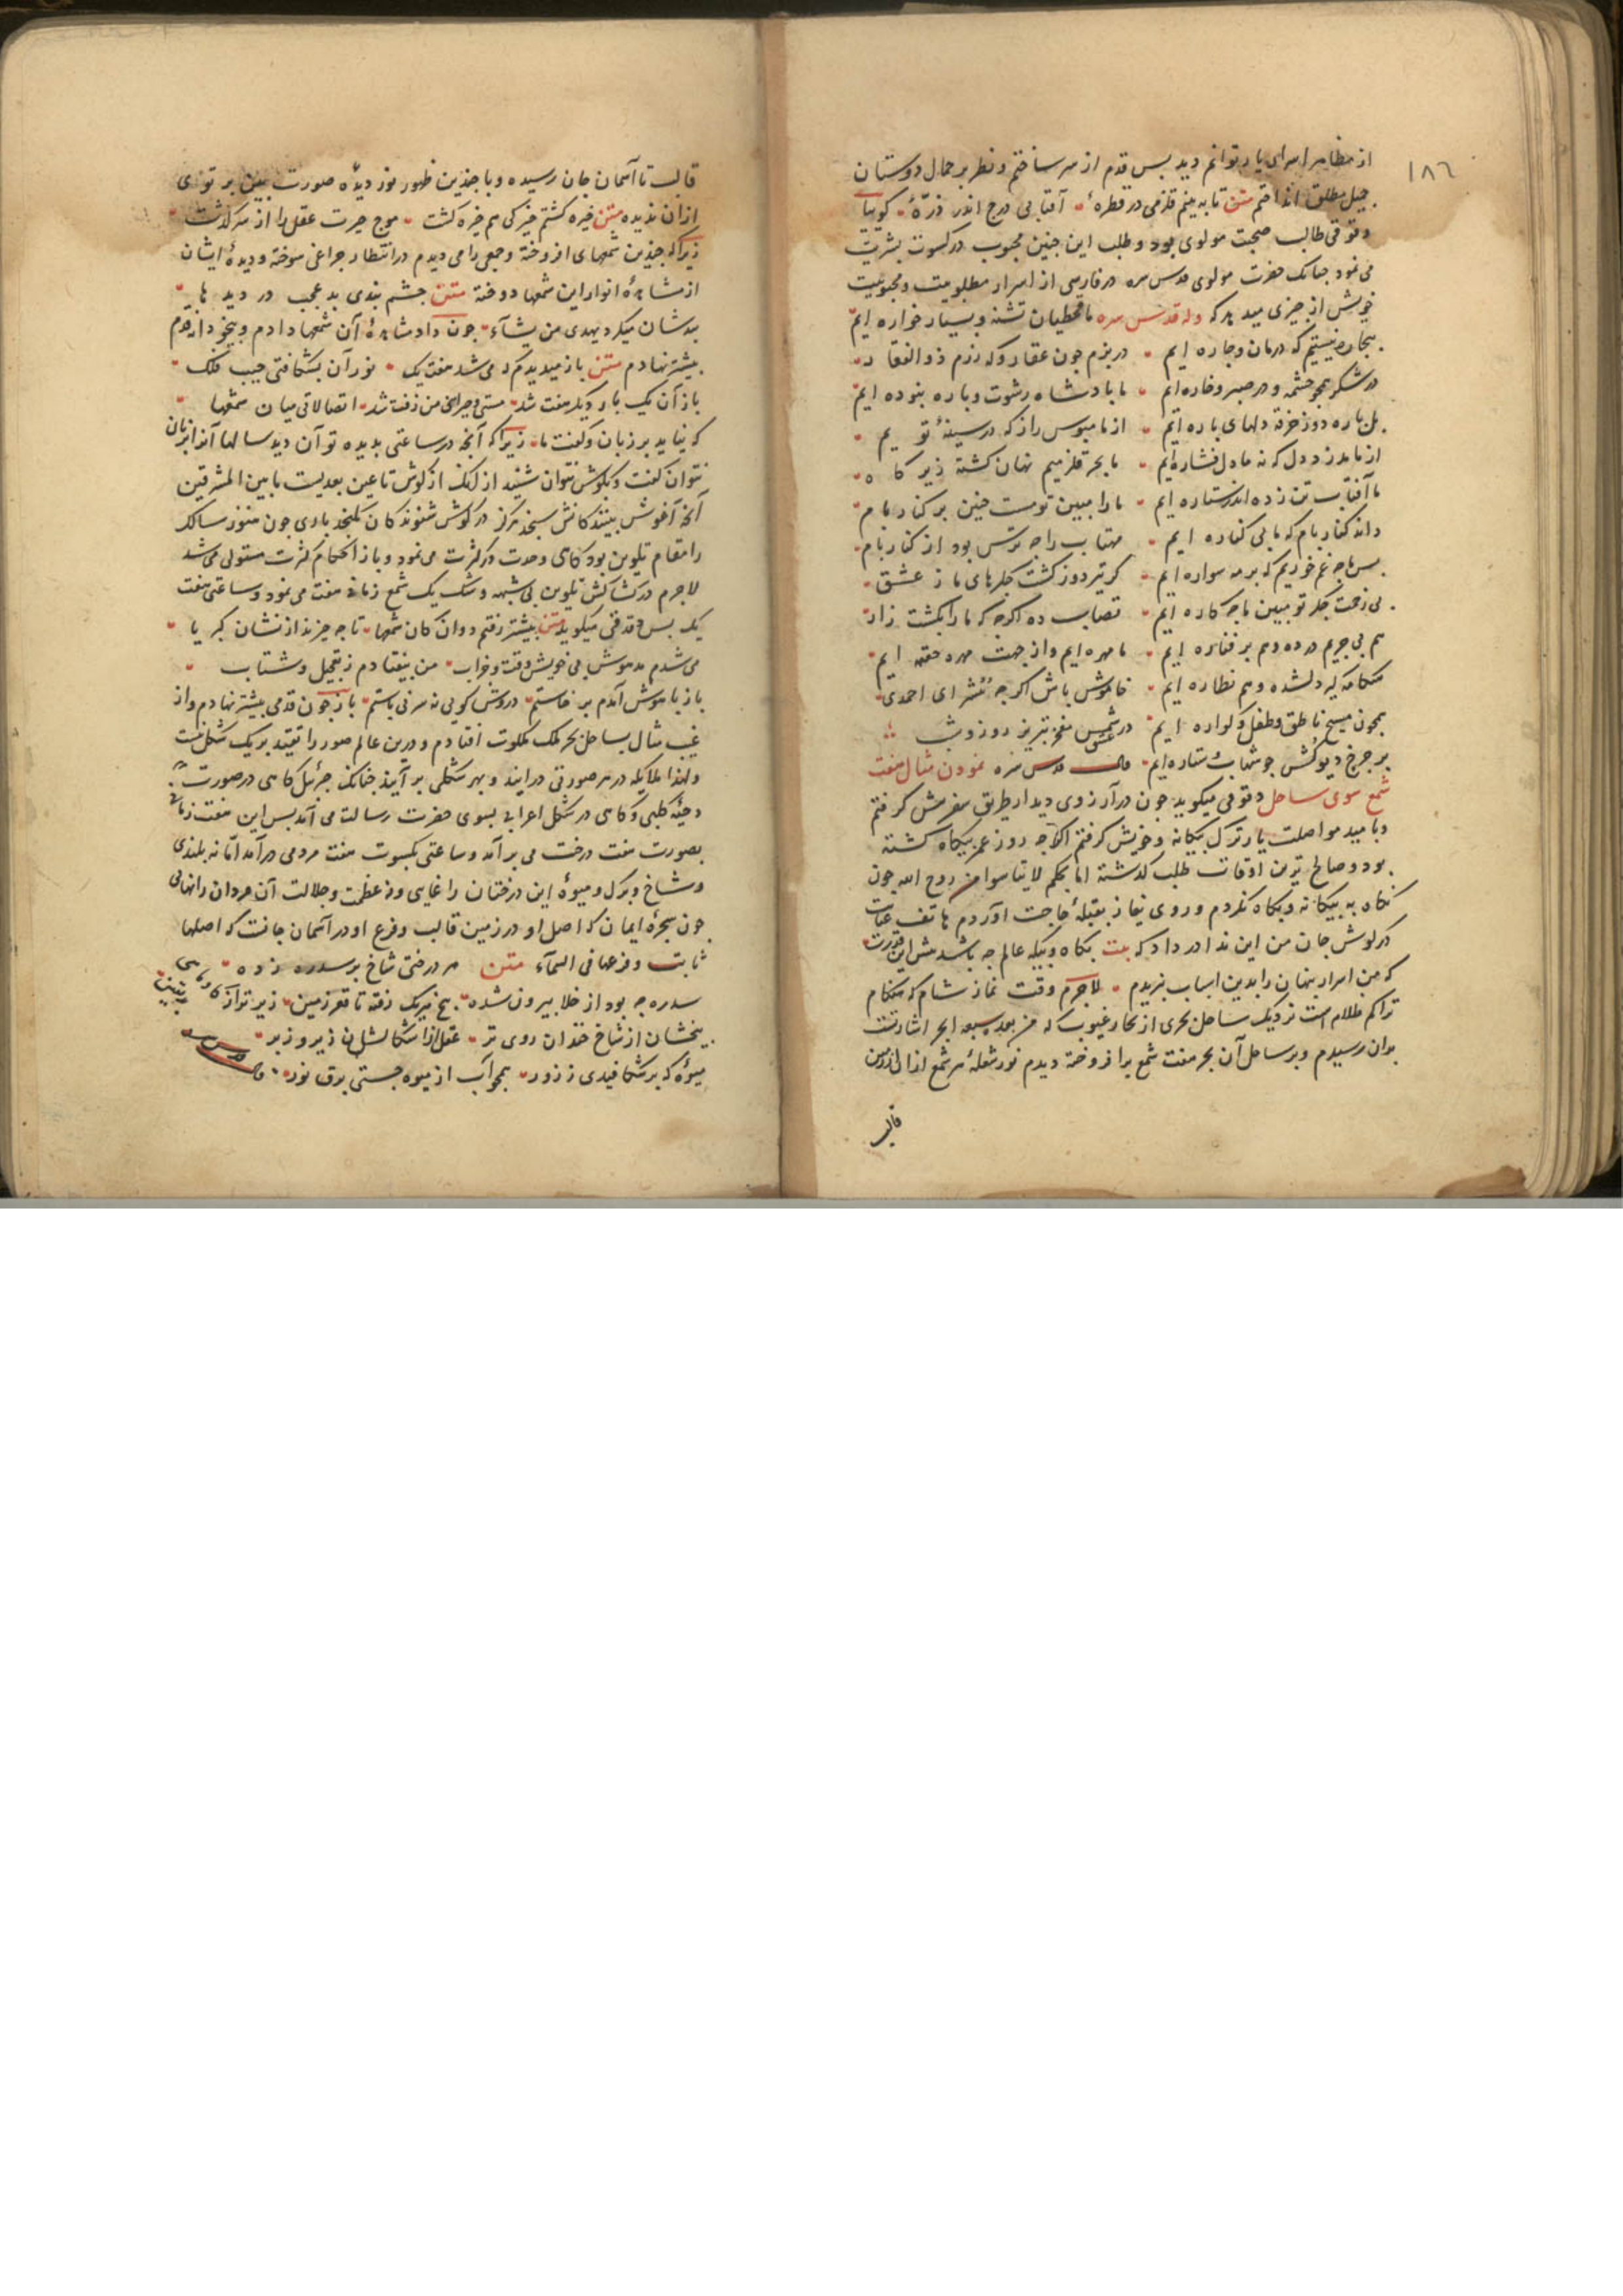 ١٨٦
از مظاهر اسرای یار توانم دید پس قدم از سر ساختم و نظر بر جمال دوستان
جیل مطلق انداختم متن تا به بینم قلزمی در قطرهٔ آفتابی درج اندر ذرّهٔ کوییا
دقوقی طالب صحبت مولوی بود و طلب این چنین محبوب در کسوت بشریت
می نمود چنانک حضرت مولوی قدس سره در فارسی از اسرار مطلوبیت و محبوبیت
خویش از چیزی میدهد که وله قدس سره ما قحطیان تشنه و بسیار خواره ایم
بیچاره نیستیم که درمان و چاره ایم در بزم چون عقار و که رزم ذو الفقار
در شکر همچو چشمه و در صبر و خاره ایم ما پادشاه رشوت و باره نبوده ایم
بل پاره دوز خرقه دلهای پاره ایم از ما مپوش راز که در سینهٔ تو یم
از ما مدزد دل که نه ما دل فشاره ایم ما بحر قلزمیم نهان کشته زیر کاه
ما آفتاب تن زده اندر ستاره ایم ما را مبین تو مست چنین بر کنار بام
داند کنار بام که ما بی کناره ایم مهتاب را چه ترس بود از کنار بام
پس ما چه غم خوریم که بر مه سواره ایم کر تیر دوز کشت جکرهای ما ز عشق
بی زحمت جکر تو ببین ما چه کاره ایم قصاب ده اکرچه که ما را بکشت زار
هم می چریم در ده و هم بر قناره ایم ما مهره ایم و از جهت مهره حقه ایم
هنکامه کیر دلشده و هم نظاره ایم خاموش باش اکرچه بشرای احمدی
همچون مسیح ناطق و طفل کواره ایم در عشق شمس مفخر تبریز روز و شب
بر چرخ دیوکش چو شهاب و ستاره ایم قال قدس سره نمودن مثال هفت
شمع سوی ساحل دقوقی میکوید چون در آرزوی دیدار طریق سفر پیش کرفتم
و بامید مواصلت یار ترک بیکانه و خویش کرفتم اکرچه روز عمر بیکاه کشته
بود و صالح ترین اوقات طلب کذشته اما بحکم لا تیاسوا من روح الله چون
نکاه به بیکانه و بکاه نکردم و روی نیاز بقبلهٔ حاجت آوردم هاتف عنایت
در کوش جان من این ندا در داد که بیت بکاه و بیکه عالم چه باشد پیش این قدرت
که من اسرار پنهان را بدین اسباب نبریدم لاجرم وقت نماز شام که هنکام
تراکم ظلام است نزدیک ساحل بحری از بحار غیوب که من بعده سبعة ابحر اشارتست
بدان رسیدم و بر ساحل آن بحر هفت شمع برافروخته دیدم نور شعلهٔ هر شمع از آن از زمین
قالب
قالب تا آسمان جان رسیده و با چندین ظهور نور دیدهٔ صورت بین پرتوی
از آن ندیده متن خیره کشتم خیرکی هم خیره کشت موج حیرت عقل را از سر کذشت
زیرا که چندین شمعهای افروخته و جمعی را می دیدم در انتظار چراغی سوخته و دیدهٔ ایشان
از مشاهدهٔ انوار این شمعها دوخته متن چشم بندی بد عجب در دیدها
بندشان میکرد یهدی من یشآء چون داد مشاهدهٔ آن شمعها دادم و بیخودانه قدم
پیشتر نهادم متن باز میدیدم که می شد هفت یک نور آن بشکافتی جیب فلک
باز آن یک بار دیکر هفت شد مستی و حیرانی من زفت شد اتصالاتی میان شمعها
که نیاید بر زبان و کفت ما زیرا که آنچه در ساعتی بدیده توان دید سالها آنرا بزبان
نتوان کفت و بکوش نتوان شنید از آنک از کوش تا عین بعدیست ما بین المشرقین
آنچه آغوش بیند کانش نسنجد هرکز در کوش شنوندکان نکنجد باری چون هنوز سالک
را مقام تلوین بود کاهی وحدت در کثرت می نمود و باز احکام کثرت مستولی می شد
لاجرم در کشاکش تلوین بی شبهه و شک یک شمع زمانی هفت می نمود و ساعتی هفت
یک پس دقوقی میکوید متن پیشتر رفتم دوان کان شمعها تا چه چیزند از نشان کبریا
می شدم مدهوش بی خویش وقت و خراب من بیفتادم ز تعجیل و شتاب
باز با هوش آمدم برخاستم در روش کویی نه سر نی پاستم باز چون قدمی پیشتر نهادم و از
غیب مثال بساحل بحر ملک ملکوت افتادم و درین عالم صور را تقید بر یک شکل نیست
و لهذا ملایکه در هر صورتی درایند و بهر شکلی برآیند چنانک جبرئیل کاهی در صورت
دحیهٔ کلبی و کاهی در شکل اعرابی بسوی حضرت رسالت می آمد پس این هفت زمانی
بصورت هفت درخت می برآمد و ساعتی بکسوت هفت مردمی درآمد امّا نه بلندی
و شاخ و برک و میوهٔ این درختان را غایی و نه عظمت و جلالت آن مردان را نهایتی
چون شجرهٔ ایمان که اصل او در زمین قالب و فرع او در آسمان جانست که اصلها
ثابت و فرعها فی السمآء متن هر درختی شاخ بر سدره زده
سدره چه بود از خلا بیرون شده بیخ هر یک رفته تا قعر زمین زیرتر از کاو و ماهی بد یقین
بیخشان از شاخ خندان روی تر عقل از آن اشکالشان زیر و زبر
میوهٔ که بر شکافیدی ز زور همچو آب از میوه جستی برق نور قال قدس سره